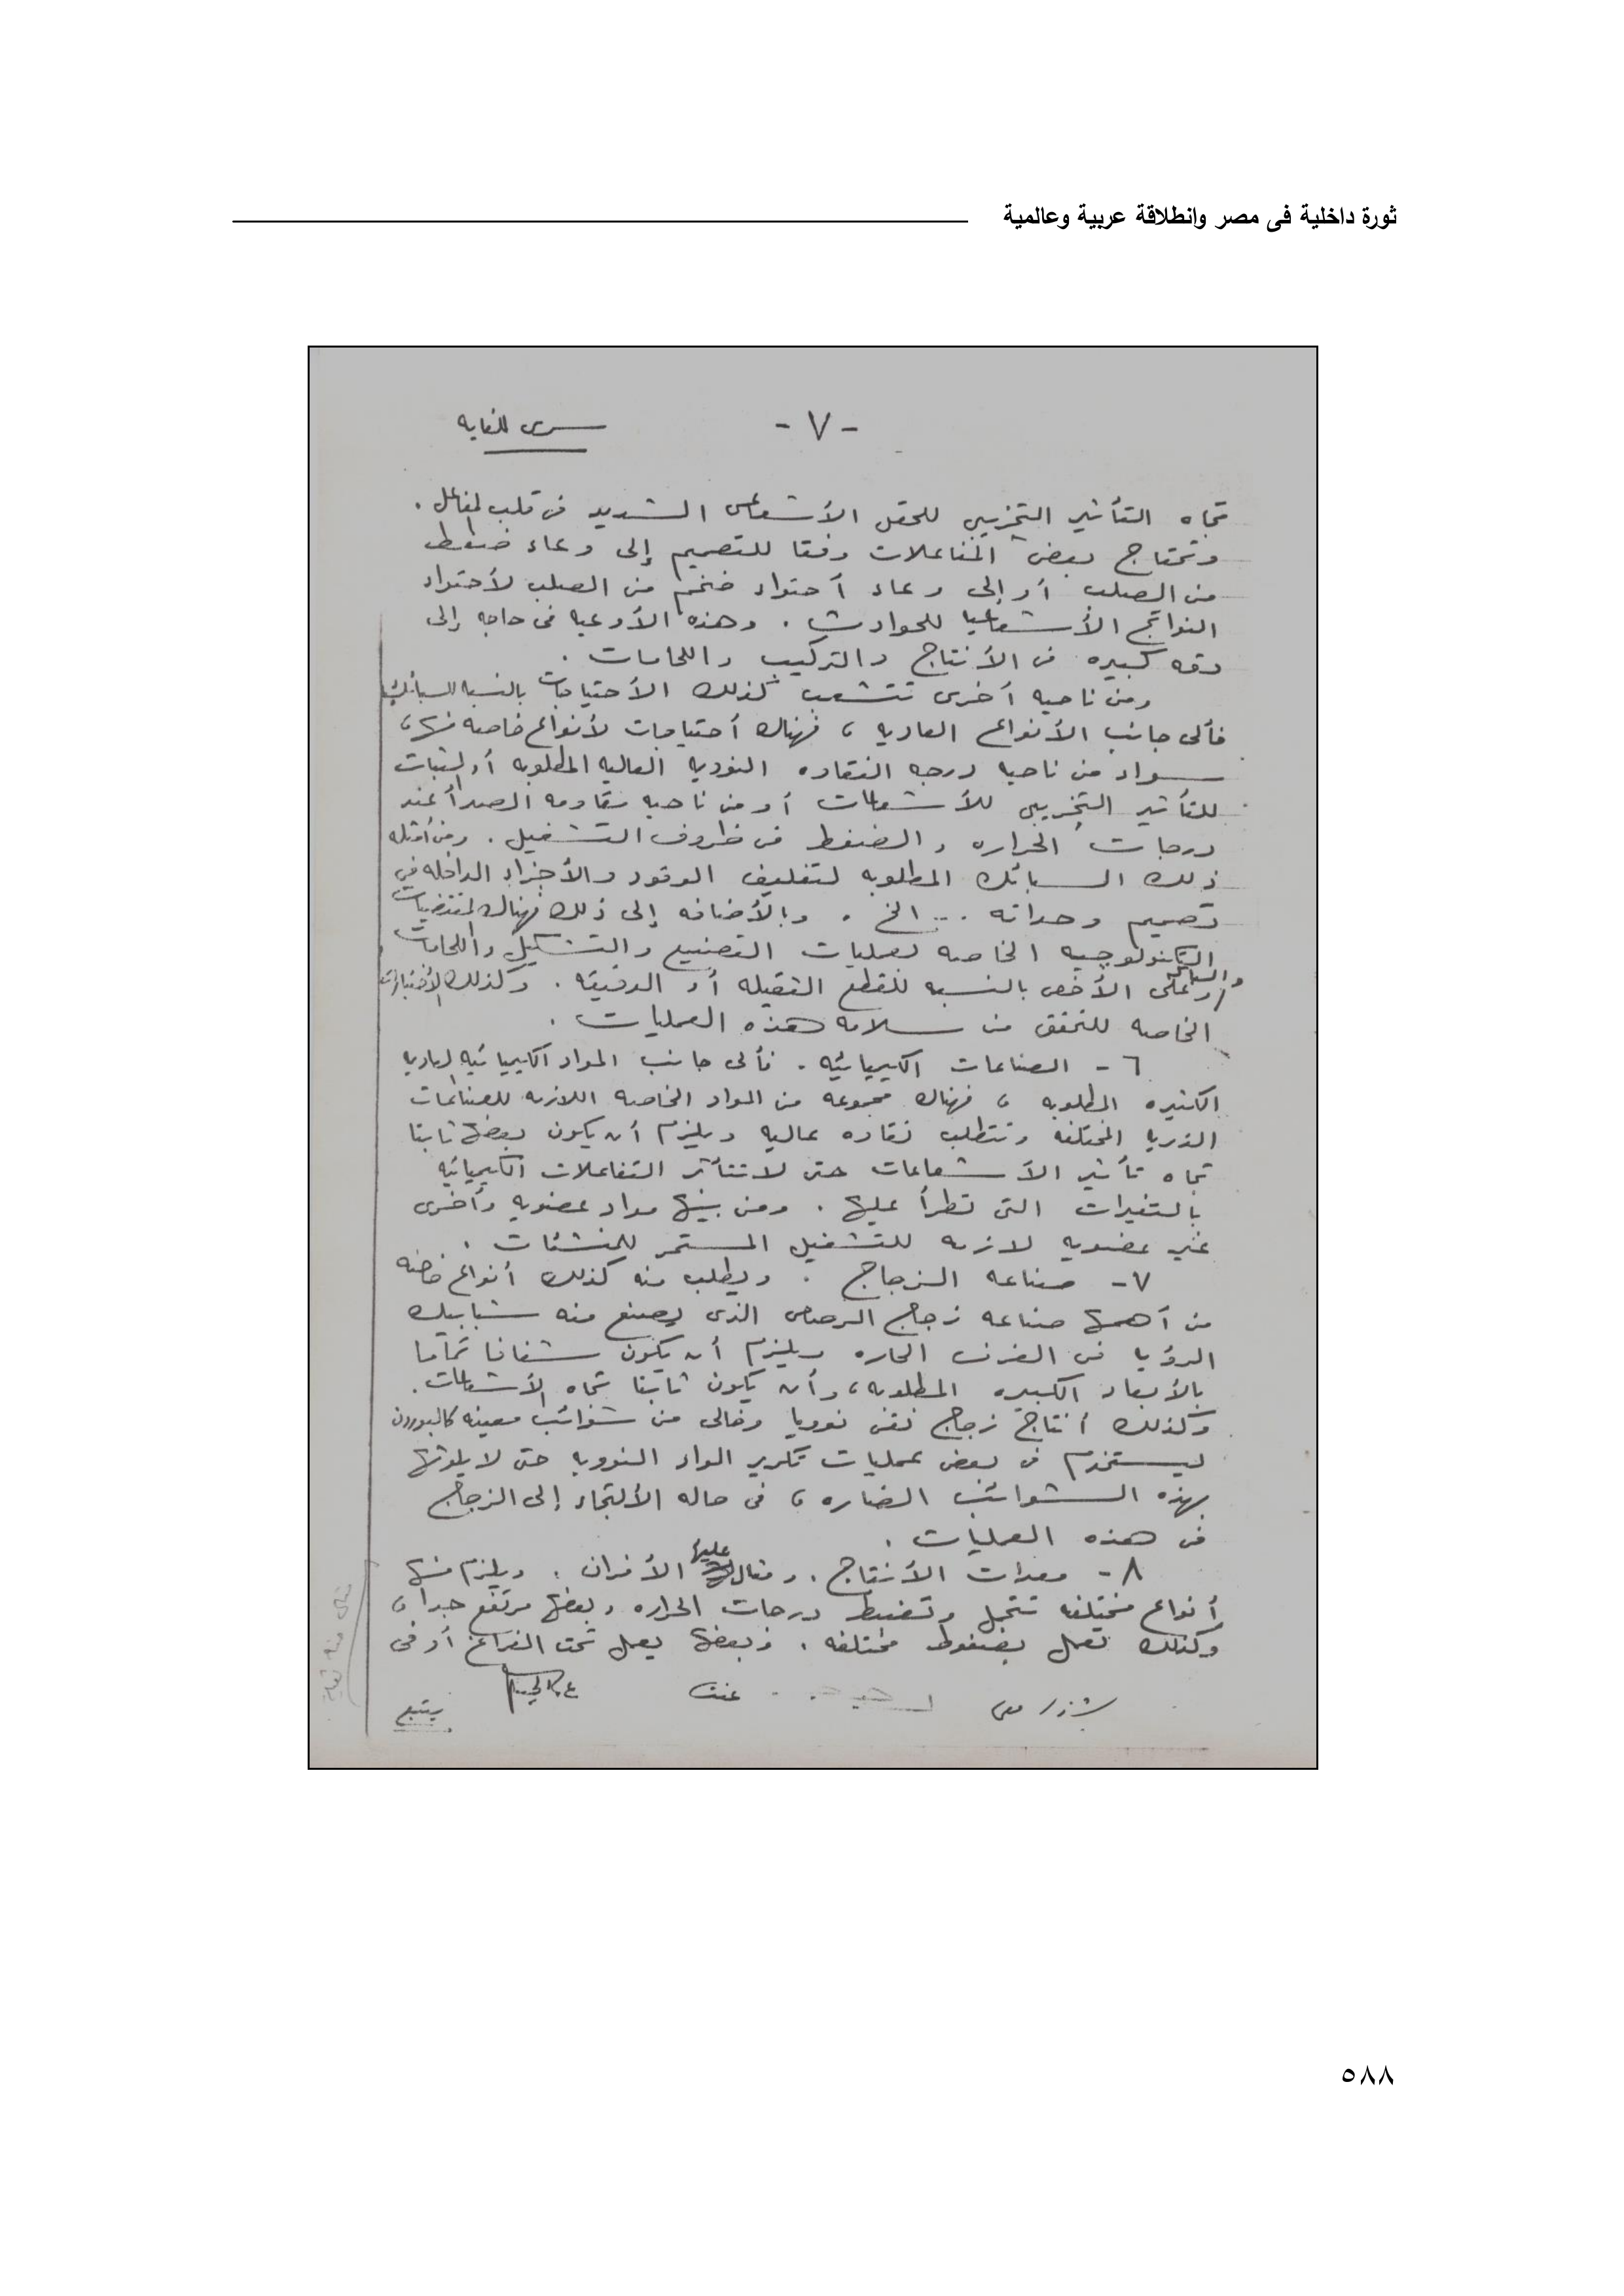 ثورة داخلية فى مصر وانطلاقة عربية وعالمية
- ٧ -
سرى للغايه
تجاه التأثير التخريبى للحقل الأشعاعى الشديد فى قلب المفاعل .
وتحتاج بعض المفاعلات وفقا للتصميم إلى وعاء ضغط
من الصلب أو إلى وعاء أحتواء ضخم من الصلب لأحتواء
النواتج الأشعاعيا للحوادث . وهذه الأوعيه فى حاجه إلى
دقه كبيره فى الأنتاج والتركيب واللحامات .
ومن ناحيه أخرى تتشعب كذلك الأحتياجات بالنسبه للسبائك
فألى جانب الأنواع العاديه ، فهناك أحتياجات لأنواع خاصه منها ،
سواء من ناحيه درجه النقاده النوويه العاليه المطلوبه أو الثبات
للتأثير التخريبى للأشعاعات أو من ناحيه مقاومه الصدأ عند
درجات الحراره والضغط فى ظروف التشغيل . ومن أمثله
ذلك السبائك المطلوبه لتغليف الوقود والأجزاء الداخله فى
تصميم وحداته ... الخ . وبالأضافه إلى ذلك فهناك المقتضيات
التكنولوجيه الخاصه لعمليات التصنيع والتشكيل واللحامات
وعلى الأخص بالنسبه للقطع الثقيله أو الدقيقه . وكذلك الأختبارات
الخاصه للتحقق من سلامه هذه العمليات .
٦ - الصناعات الكيميائيه . فألى جانب المواد الكيميائيه العاديه
الكثيره المطلوبه ، فهناك مجموعه من المواد الخاصه اللازمه للصناعات
الذريه المختلفه وتتطلب نقاده عاليه ويلزم أن يكون بعضها ثابتا
تجاه تأثير الأشعاعات حتى لا تتأثر التفاعلات الكيميائيه
بالتغيرات التى تطرأ عليها . ومن بينها مواد عضويه وأخرى
غير عضويه لازمه للتشغيل المستمر للمنشئات .
٧ - صناعه الزجاج . ويطلب منه كذلك أنواع خاصه
من أهمها صناعه زجاج الرصاص الذى يصنع منه شبابيك
الرؤيا فى الغرف الحاره ويلزم أن يكون شفافا تماما
بالأبعاد الكبيره المطلوبه ، وأن يكون ثابتا تجاه الأشعاعات .
وكذلك أنتاج زجاج نقى نوويا وخالى من شوائب معينه كالبورون
ليستخدم فى بعض عمليات تكرير المواد النوويه حتى لا يلوثها
بهذه الشوائب الضاره ، فى حاله الألتجاء إلى الزجاج
فى هذه العمليات .
٨ - معدات الأنتاج . ومثال عليها الأفران . ويلزم منها
أنواع مختلفه تتحمل وتضبط درجات الحراره وبعضها مرتفع جدا ،
وكذلك تعمل بضغوط مختلفه . فبعضها يعمل تحت الفراغ أو فى
يتبع
٥٨٨